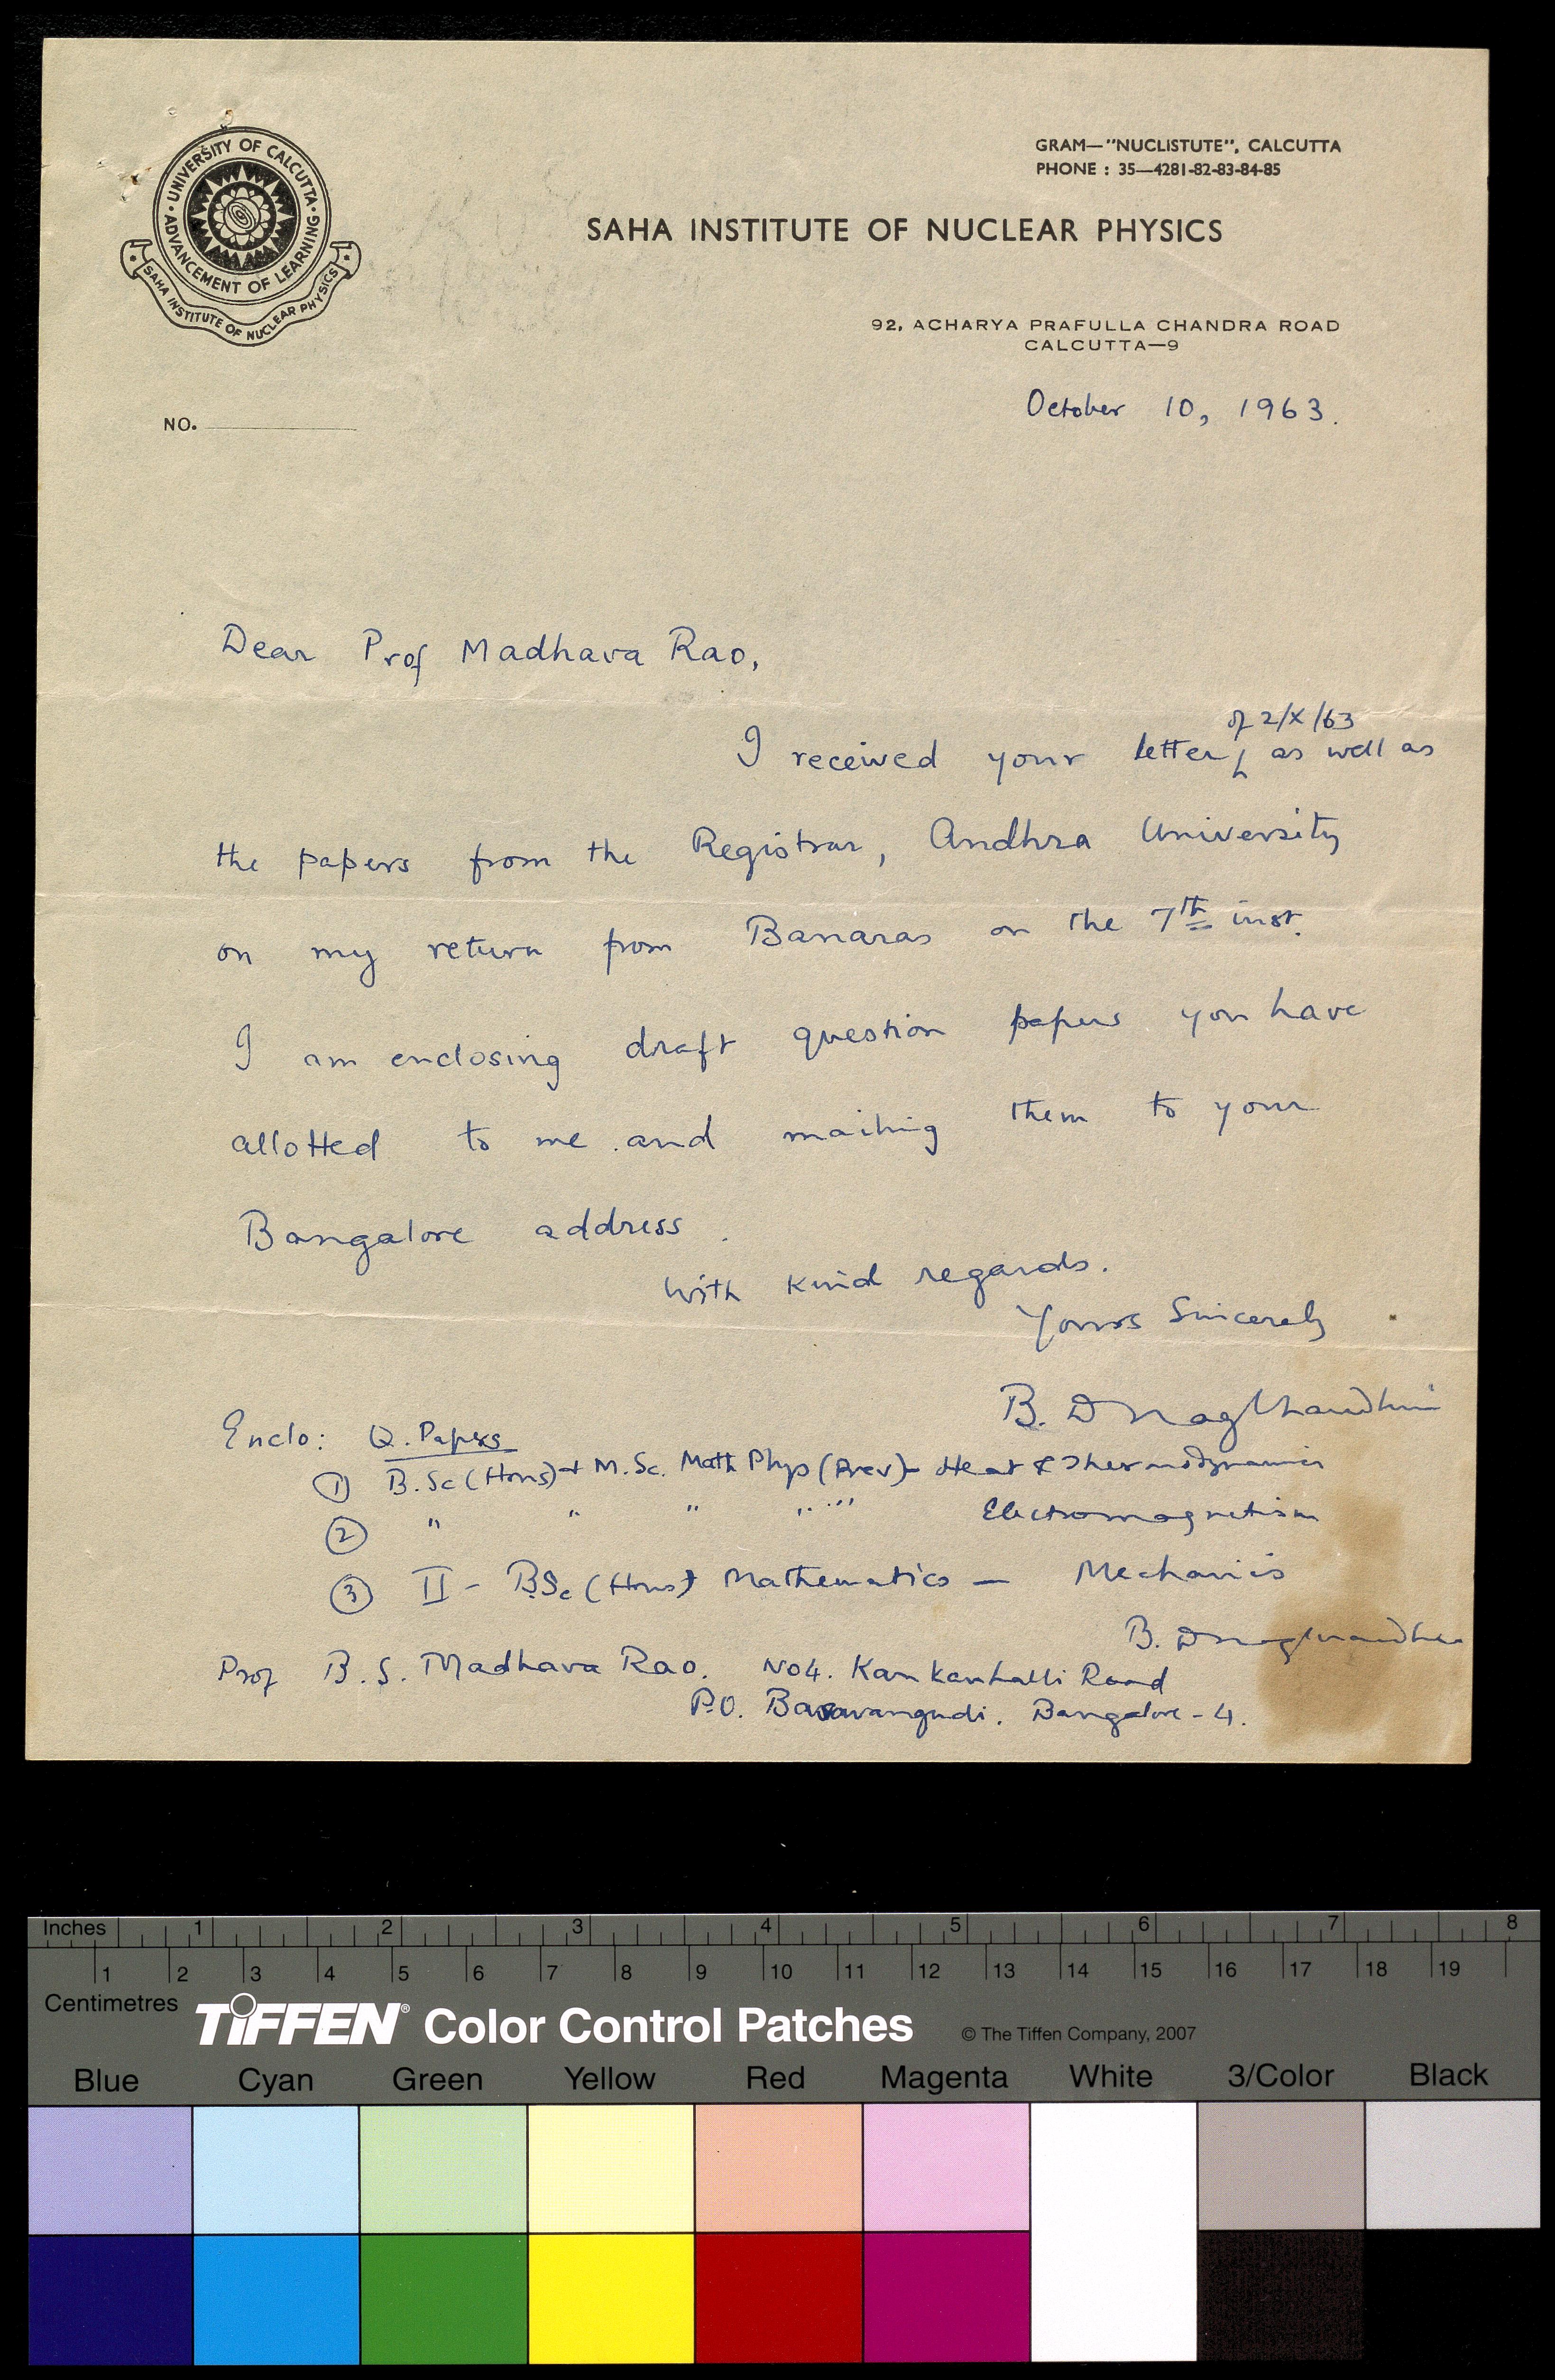 UNIVERSITY OF CALCUTTA
ADVANCEMENT OF LEARNING
SAHA INSTITUTE OF NUCLEAR PHYSICS
GRAM—"NUCLISTUTE", CALCUTTA
PHONE : 35—4281-82-83-84-85
SAHA INSTITUTE OF NUCLEAR PHYSICS
92, ACHARYA PRAFULLA CHANDRA ROAD
CALCUTTA—9
NO.
October 10, 1963.
Dear Prof Madhava Rao,
of 2/X/63
I received your letter, as well as
the papers from the Registrar, Andhra University
on my return from Banaras on the 7th inst.
I am enclosing draft question papers you have
allotted to me and mailing them to your
Bangalore address.
With kind regards.
Yours Sincerely
B. D Nagchaudhuri
Enclo: Q. Papers
① B.Sc (Hons) + M.Sc. Math Phys (Prev) - Heat & Thermodynamics
② " " " " " Electromagnetism
③ II - BSc (Hons) Mathematics — Mechanics
B. D Nagchaudhuri
Prof B. S. Madhava Rao. No4. Kankanhalli Road
P.O. Basavangudi. Bangalore - 4.
Inches 1 2 3 4 5 6 7 8
1 2 3 4 5 6 7 8 9 10 11 12 13 14 15 16 17 18 19
Centimetres
TIFFEN® Color Control Patches © The Tiffen Company, 2007
Blue Cyan Green Yellow Red Magenta White 3/Color Black